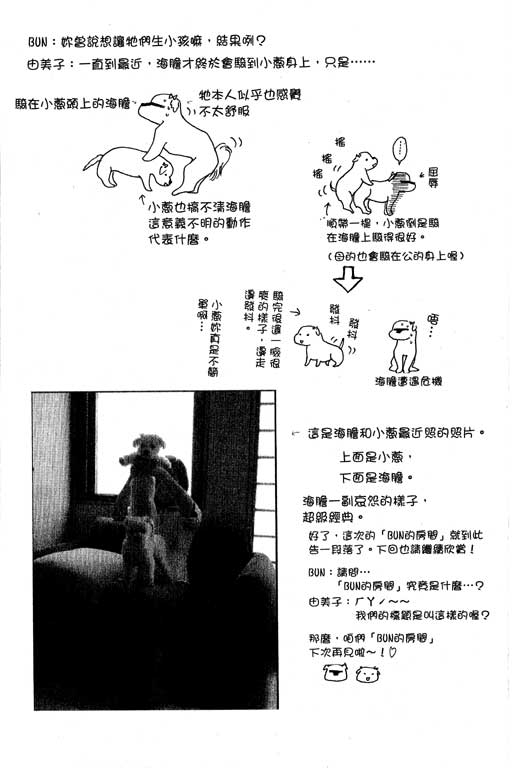 BUN：妳曾說想讓牠們生小孩嘛，結果咧？
由美子：一直到最近，海膽才終於會騎到小蔥身上，只是……
騎在小蔥頭上的海膽
牠本人似乎也感覺
不太舒服
小蔥也搞不清海膽
這意義不明的動作
代表什麼。
搖
搖
搖
……
屈辱
順帶一提，小蔥倒是騎
在海膽上騎得很好。
（母的也會騎在公的身上喔）
騎完後這一臉很
爽的樣子，邊走
邊發抖。
小蔥妳真是不簡
單啊…
發抖
發抖
唔…
海膽遭遇危機
這是海膽和小蔥最近照的照片。
上面是小蔥，
下面是海膽。
海膽一副哀怨的樣子，
超級經典。
好了，這次的「BUN的房間」就到此
告一段落了。下回也請繼續欣賞！
BUN：請問…
「BUN的房間」究竟是什麼…？
由美子：ㄏㄚˊ～～
我們的標題是叫這樣的喔？
那麼，咱們「BUN的房間」
下次再見啦～！♡